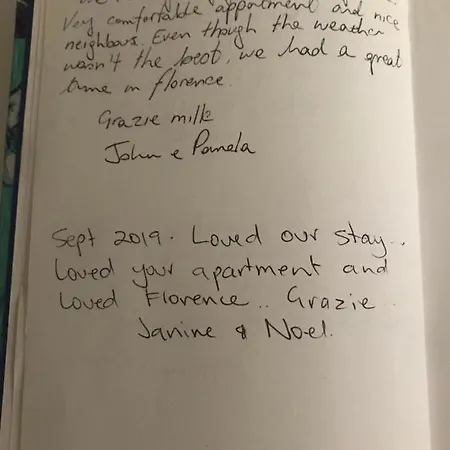 Very comfortable appartment and nice
neighbours. Even though the weather
wasn't the best, we had a great
time in florence.
Grazie mille
John e Pamela
Sept 2019. Loved our stay..
Loved your apartment and
loved Florence.. Grazie.
Janine & Noel.